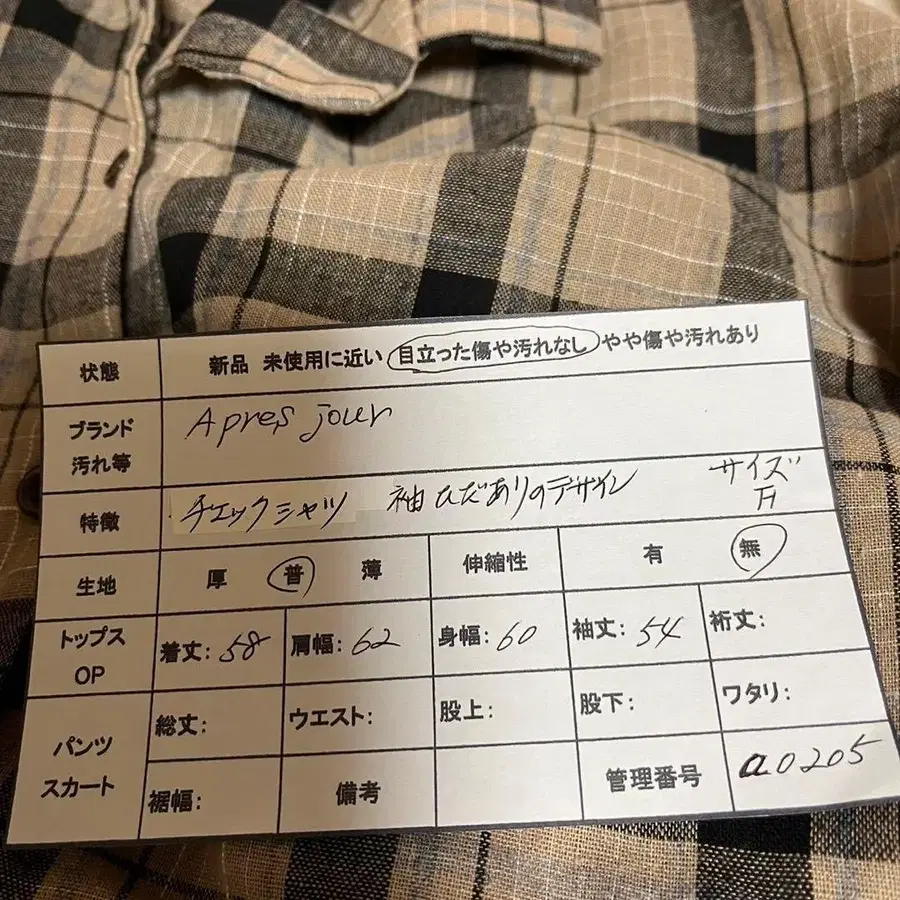 状態 新品 未使用に近い 目立った傷や汚れなし やや傷や汚れあり
ブランド Apres jour
汚れ等
特徴 チェックシャツ 袖ひだありのデザイン サイズ
生地 厚 普 薄 伸縮性 有 無
トップス OP 着丈: 58 肩幅: 62 身幅: 60 袖丈: 54 裄丈:
パンツ スカート 総丈: ウエスト: 股上: 股下: ワタリ:
裾幅: 備考 管理番号 a0205